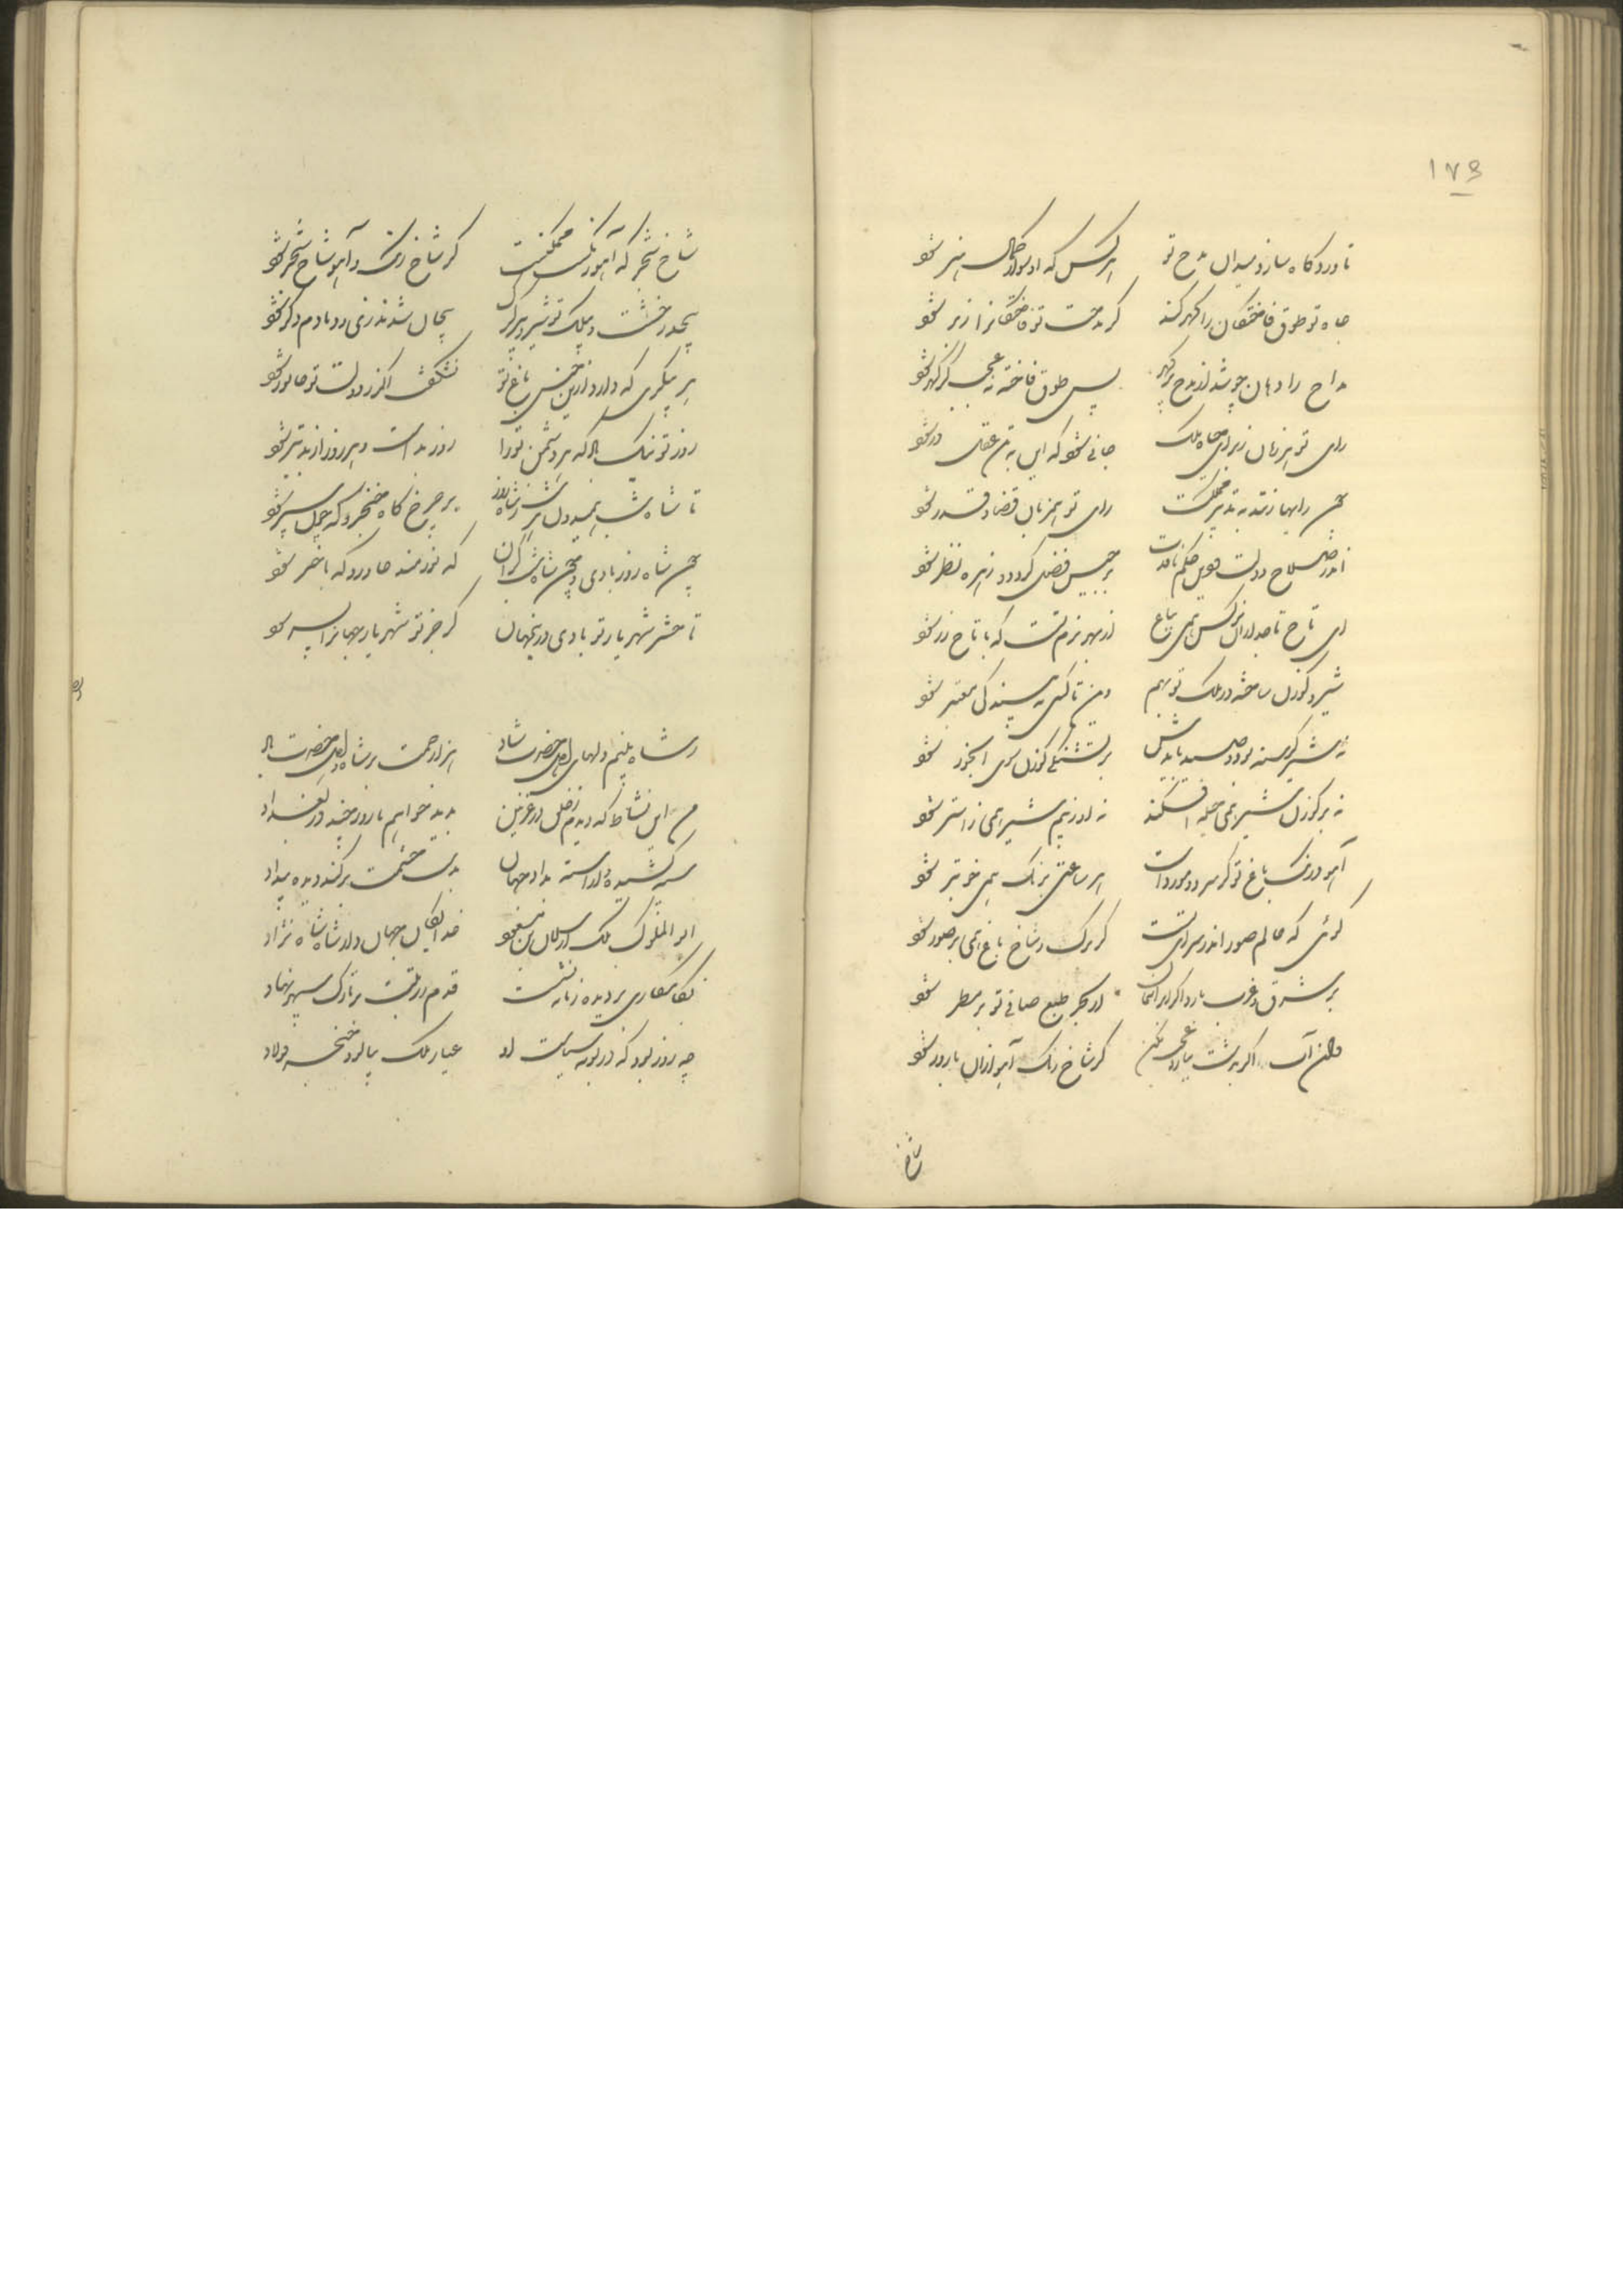 ۱۷۶
تا وردگاه سازد میدان مدح تو هرکس که او سوار کمال هنر شو
جاه تو طوق فاختگان را گهر کند گر مدحت تو فاختگانرا ز بر شو
مداح را دهان چو شد از مدح پر گهر پس طوق فاخته نه عجب گر گهر شو
رای تو هر زمان ز برای جاه ملک جانی شو که این به تن عقل در شو
چون رایها زنند به تدبیر مملکت رای تو همزبان قضا و قدر شو
اندر صلاح دولت حکم نافذت برجیس فضل گردد و زهره نظر شو
ای تاج تاجداران نرگس همی بباغ از بهر بزم تست که با تاج زر شو
شیر و گوزن ساخته در ملک تو بهم
نه شیر گرسنه بود و صید بایدش بر تشنگی گوزن سوی آبخور شو
نه بر گوزن شیر همی حمله افکند نه او ز بیم شیر همی زاستر شو
آهو و رنگ باغ تو گر سرد و مرده است هر ساعتی برنگ همی خوبتر شو
گوئی که عالم صور اندر سرای تست کز برگ و شاخ باغ همی بر صور شو
بر شرق و غرب بارد اگر ابر آسمان از بحر طبع صافی تو بر مطر شو
وان آب اگر بدشت ببارد عجب مکن گر شاخ رنگ آهو ازان بارور شو
شاخ
شاخ شجر که آهو و رنگست ممکنست گر شاخ رنگ و آهو شاخ شجر شو
بیجان شدند زی رد با دم دگر شو
هر پیکری که دارد ازین جنس باغ تو نشکفت اگر ز دولت تو جانور شو
روز تو نیک باد که مر دشمن تورا روز بد است و هر روز از بد بتر شو
تا شاه شب همیدون هر شب ز شاه روز بر چرخ گاه خنجر و گه چون سپر شو
چون شاه روز بادی و چون شاه شب گران که نورمند خاور و گه باختر شو
تا حشر شهریار تو بادی درین جهان گر جز تو شهریار جهانرا بسر شو
ز شاه بینم دلهای اهل حضرت شاد هزار رحمت بر شاه و اهل حضرت باد
من این نشاط که دیدم ز خلق در غزنین بدید خواهم تا روز چند در بغداد
سپه کشیده و آراسته بداد جهان بدست حشمت برکنده دیده بیداد
ابوالملوک ملک ارسلان بن مسعود خدایگان جهان داور شاه شاه نژاد
بکامکاری بر دیده زمانه نشست قدم ز رتبت بر تارک سپهر نهاد
چه روز بود که در بوته سیاست او عیار ملک بپالود خنجر فولاد